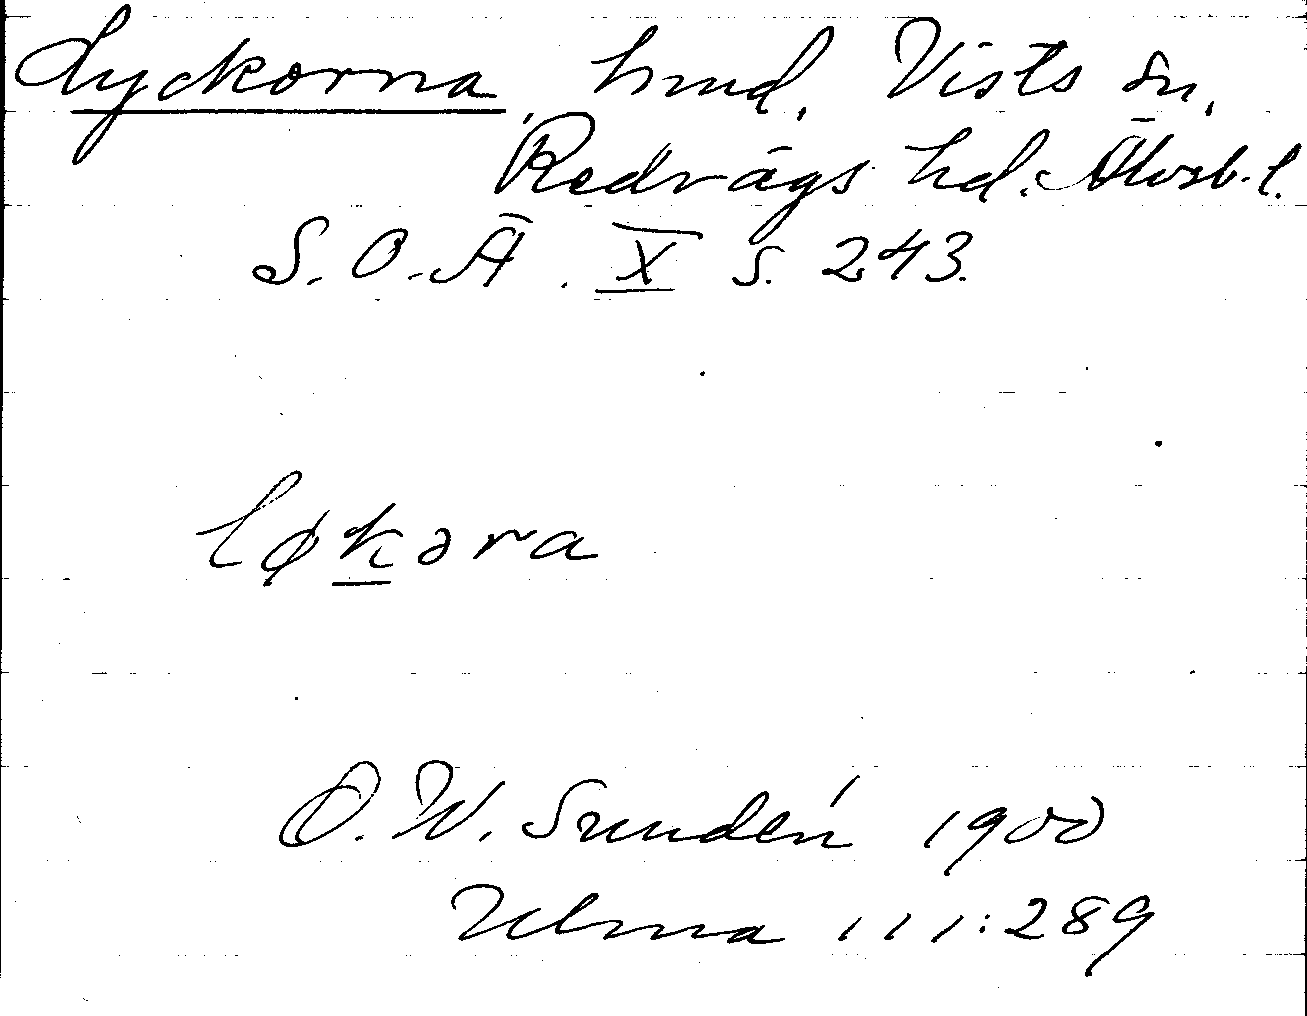 Lyckorna, hmd, Vists sn,
Redvägs hd. Älvsb. l.
S. O. Ä. X s. 243.
løkəra
O. W. Sundén 1900
Ulma 111:289